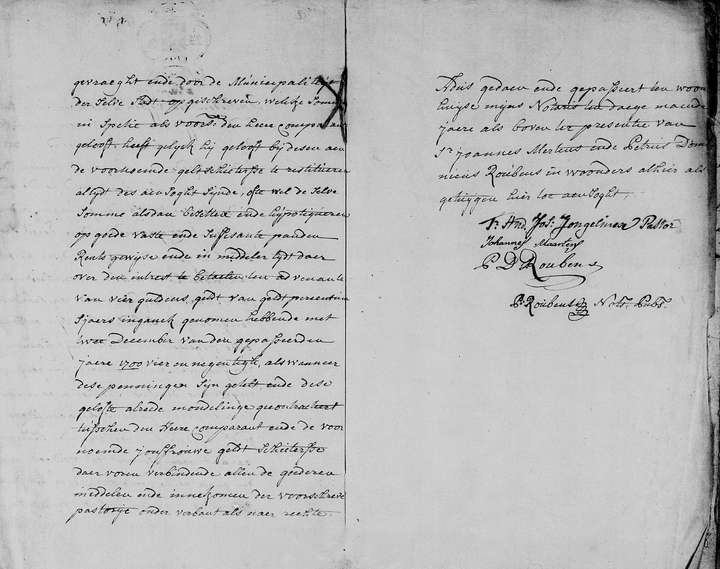 gevraeght ende door de Municipaliteijt
der Selve Stadt opgeschreven, welcke Somme
in Spetie als voors: den heere Comparant
gelooft, heeft gelyck hij gelooft bij desen aen
de voornoemde geldtschietersse te restitueren
altijdt des aensoght synde, ofte wel de selve
Somme alsdan besetten ende hijpotiqueren
op goede vaste ende suffisante panden
Rents gewijse ende in middeler tijdt daer
over den intrest te betaelen ten advenante
van vier guldens, geldt van geldt percentum
Sjaers inganck genomen hebbende met
December van den gepasseerden
jaere 1700 vier en negentigh, als wanneer
dese penningen syn getelt ende dese
gelofte alrede mondelinge gecontracteert
tusschen den Heere Comparant ende de voor
noemde jouffrouwe geldt schietersse
daer voren verbindende allen de goederen
middelen ende innekomen der voorschreve
pastorye onder verbant als naer rechte.
Aldus gedaen ende gepasseert ten woon
huijse mijns Notaris ten daege maende
jaere als boven ter presentie van
Sr. Joannes Mertens ende Petrus Domi
nicus Roubens inwoonders alhier als
getuijgen hier toe aensoght.
Fr. And. Jos. Jongelincx Pastor
Johannes Maertens
P D Roubens
P. Roubens Nots. Pubs.